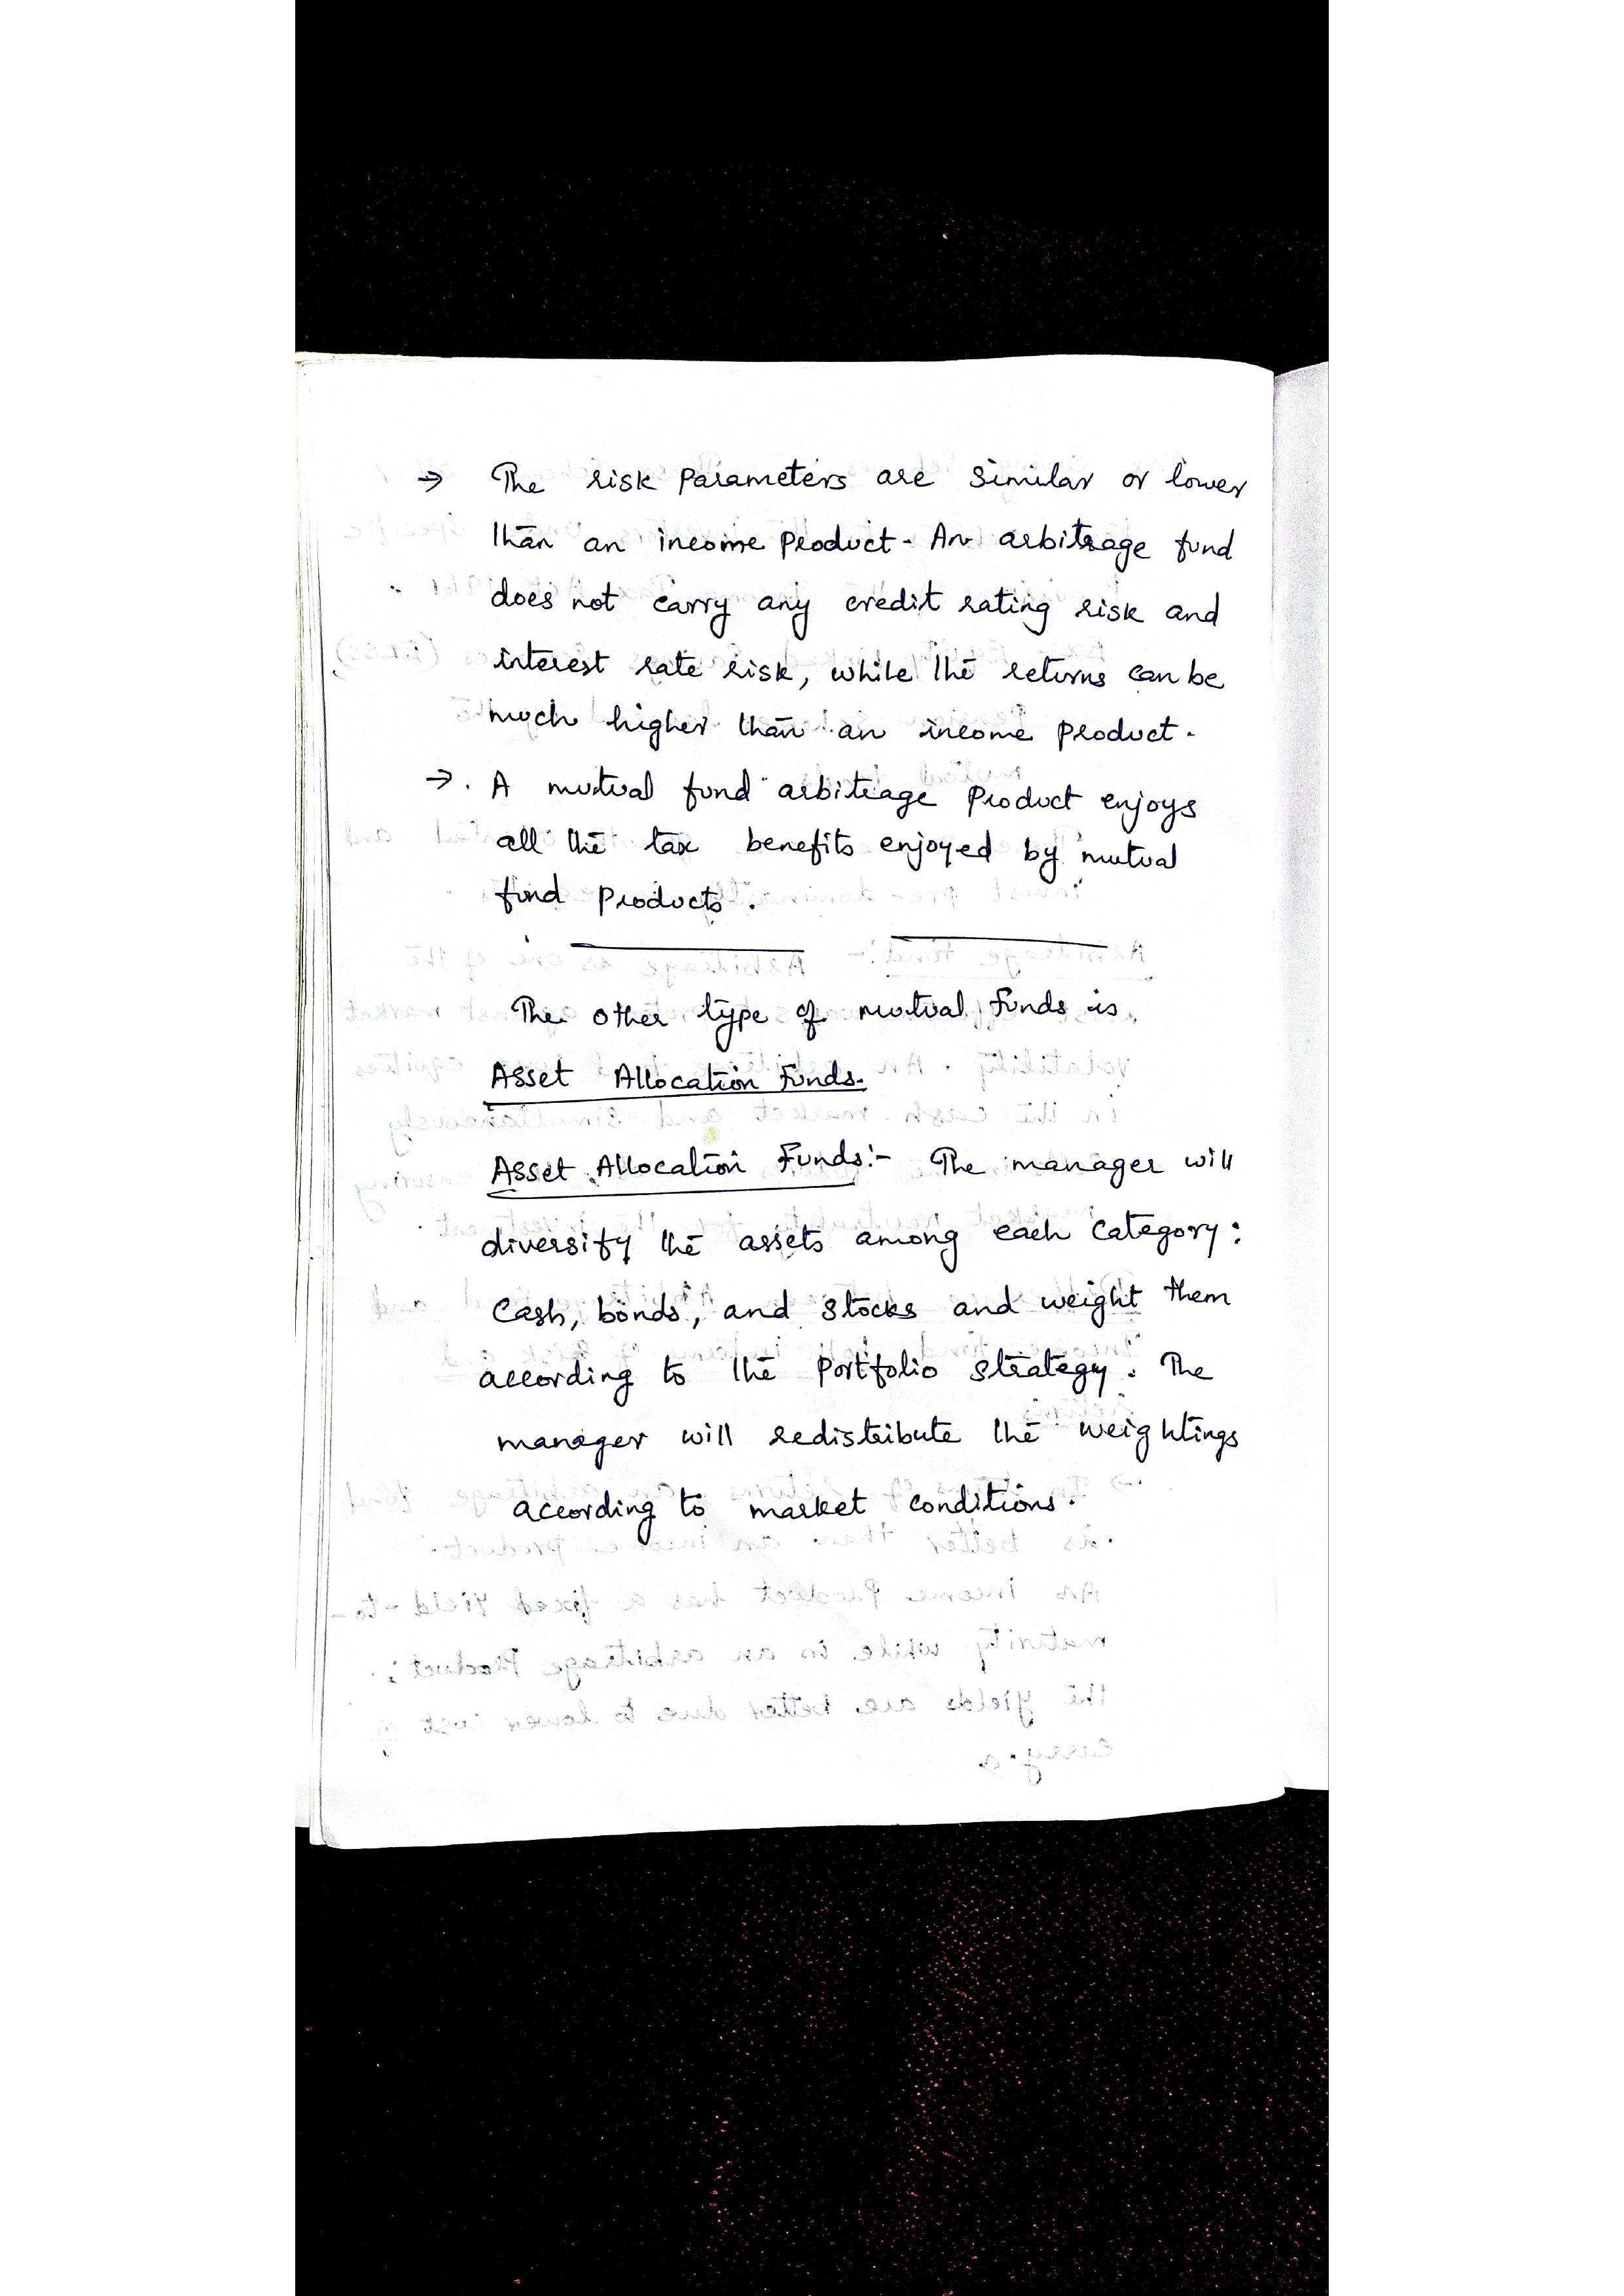 → The risk Parameters are similar or lower
than an income product. An arbitrage fund
does not carry any credit rating risk and
interest rate risk, while the returns can be
much higher than an income product.
→. A mutual fund arbitrage product enjoys
all the tax benefits enjoyed by mutual
fund products.
The other type of mutual funds is
Asset Allocation Funds.
Asset Allocation Funds:- The manager will
diversify the assets among each category:
Cash, bonds, and stocks and weight them
according to the Portfolio strategy. The
manager will redistribute the weightings
according to market conditions.